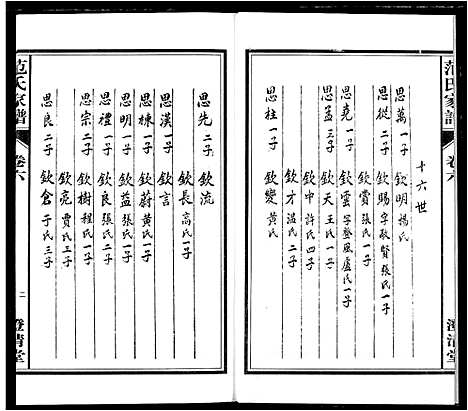 范氏家譜
卷六
澄清堂
十六世
思萬 一子 欽明 楊氏
思從 二子 欽賜 字敬賢 張氏 一子
欽賞 張氏 一子
思堯 一子 欽雲 字登風 盧氏 一子
思孟 三子 欽天 王氏 一子
欽中 許氏 四子
欽才 温氏 二子
思柱 一子 欽變 黄氏
思先 二子 欽流
欽長 高氏 一子
思漢 一子 欽言
思棟 一子 欽蔚 黄氏 一子
思明 一子 欽益 張氏 一子
思禮 一子 欽良 張氏 二子
思宗 二子 欽樹 程氏 一子
欽亮 賈氏 三子
思良 二子 欽倉 于氏 三子
范氏家譜
卷六
二
澄清堂